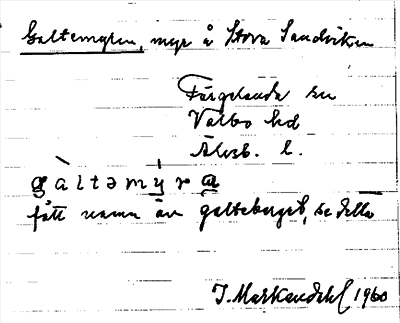 Galtemyren, myr å Stora Sandviken
Färgelanda sn
Valbo hd
Älvsb. l.
gàltəmýra
fått namn av galteberget, se detta
J. Markendahl 1960